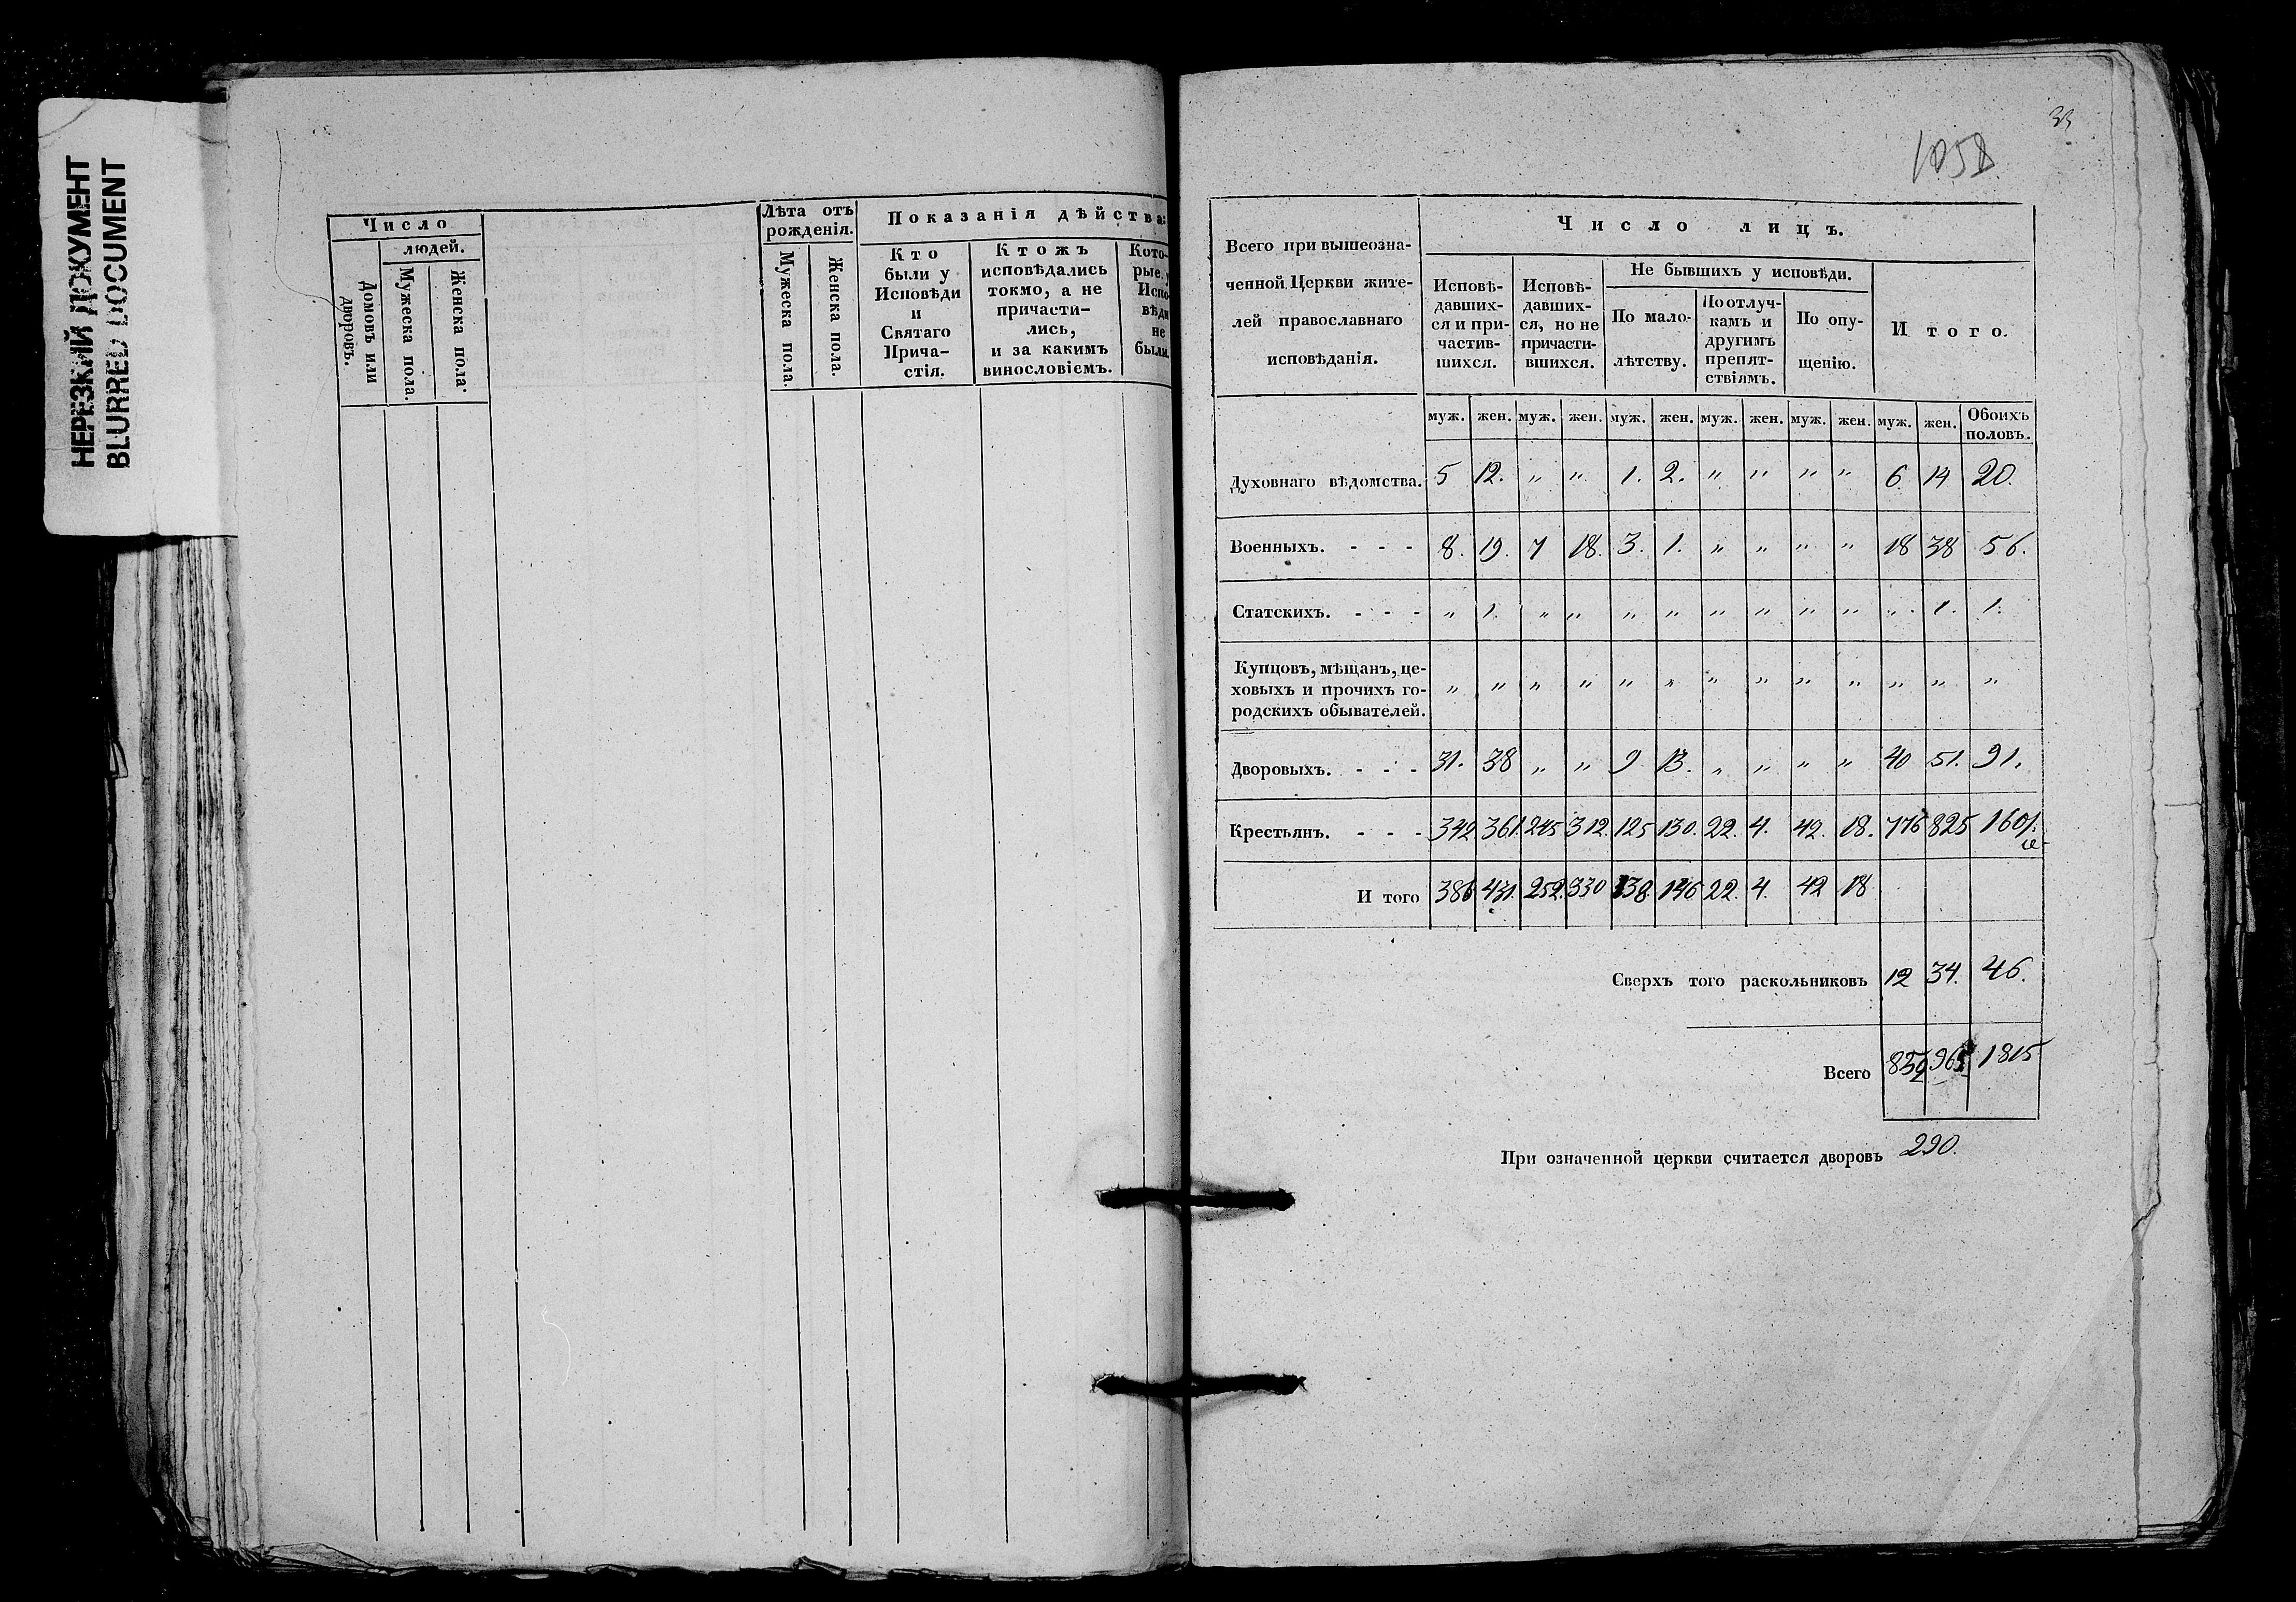 НЕРЕЗКИЙ ДОКУМЕНТ
BLURRED DOCUMENT
Число
людей.
Домовъ или дворовъ.
Мужеска пола.
Женска пола.
Лѣта отъ
рожденія.
Мужеска пола.
Женска пола.
Показанія дѣйства:
Кто
были у
Исповѣди
и
Святаго
Прича-
стія.
Ктожъ
исповѣдались
токмо, а не
причасти-
лись,
и за какимъ
винословіемъ.
Кото-
рые у
Испо-
вѣди
не
были.
33
1058
Всего при вышеозна-
ченной Церкви жите-
лей православнаго
исповѣданія.
Число лицъ.
Исповѣ-
давших-
ся и при-
частив-
шихся.
Исповѣ-
давших-
ся, но не
причасти-
вшихся.
Не бывшихъ у исповѣди.
По мало-
лѣтству.
По отлуч-
камъ и
другимъ
препят-
ствіямъ.
По опу-
щенію.
Итого.
муж. жен. муж. жен. муж. жен. муж. жен. муж. жен. муж. жен. Обоихъ
половъ.
Духовнаго вѣдомства. 5 12. " " 1. 2. " " " " 6 14 20.
Военныхъ. - - - 8. 19. 7 18. 3. 1. " " " " 18 38 56.
Статскихъ. - - - " 1. " " " " " " " " " 1. 1.
Купцовъ, мѣщанъ, це-
ховыхъ и прочихъ го-
родскихъ обывателей. " " " " " " " " " " " " "
Дворовыхъ. - - - 31. 38 " " 9. 13. " " " " 40 51. 91.
Крестьянъ. - - - 342 361. 245 312. 125 130. 22. 4. 42. 18. 776 825 1601.
И того 386 431. 252. 330 138. 146 22. 4. 42 18
Сверхъ того раскольниковъ 12 34. 46.
Всего 852 963 1815
При означенной церкви считается дворовъ 290.